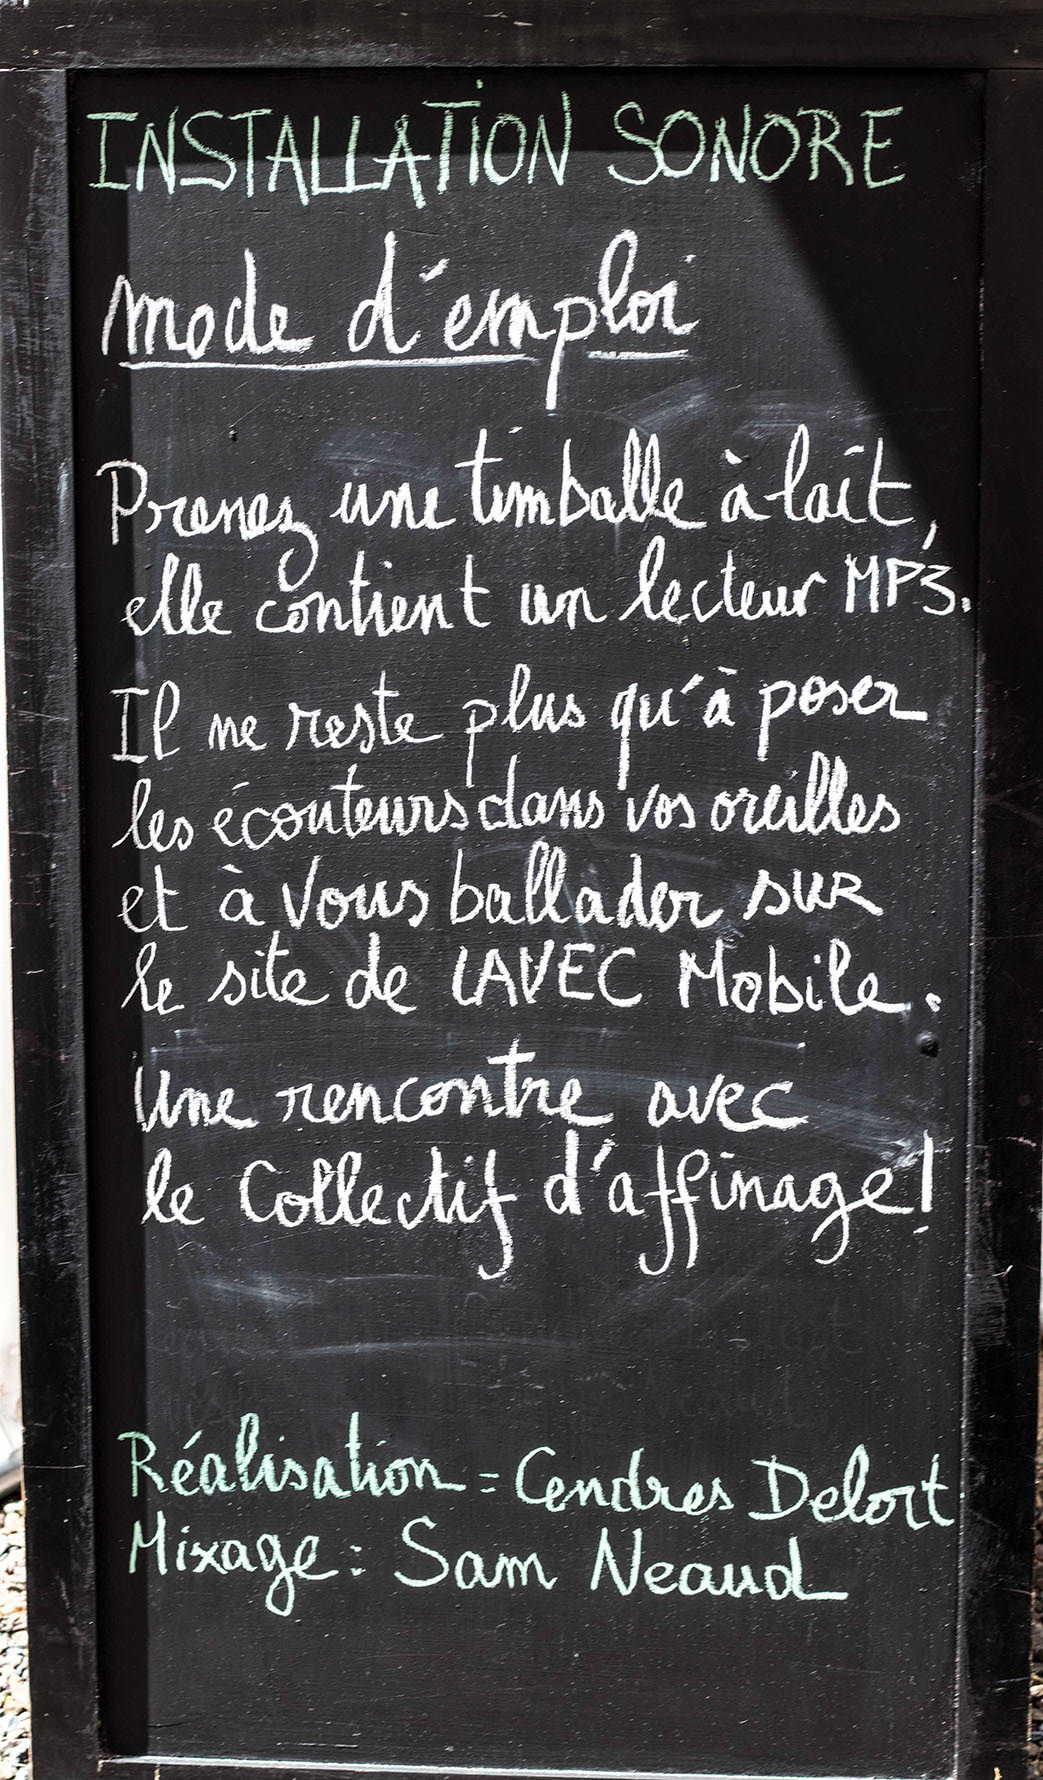 INSTALLATION SONORE
mode d'emploi
Prenez une timballe à lait,
elle contient un lecteur MP3.
Il ne reste plus qu'à poser
les écouteurs dans vos oreilles
et à vous ballader sur
le site de LAVEC Mobile.
Une rencontre avec
le Collectif d'affinage !
Réalisation = Cendres Delort
Mixage : Sam Neaud